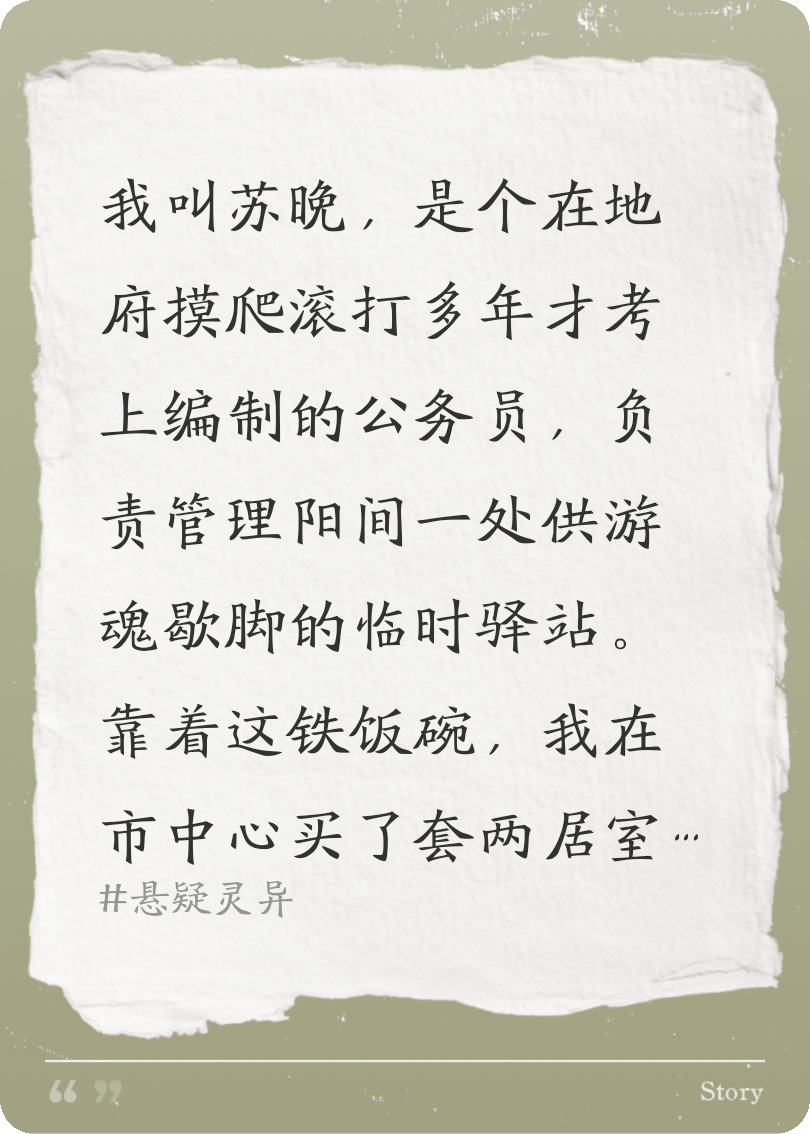 我叫苏晚，是个在地
府摸爬滚打多年才考
上编制的公务员，负
责管理阳间一处供游
魂歇脚的临时驿站。
靠着这铁饭碗，我在
市中心买了套两居室…
#悬疑灵异
“ ”
Story